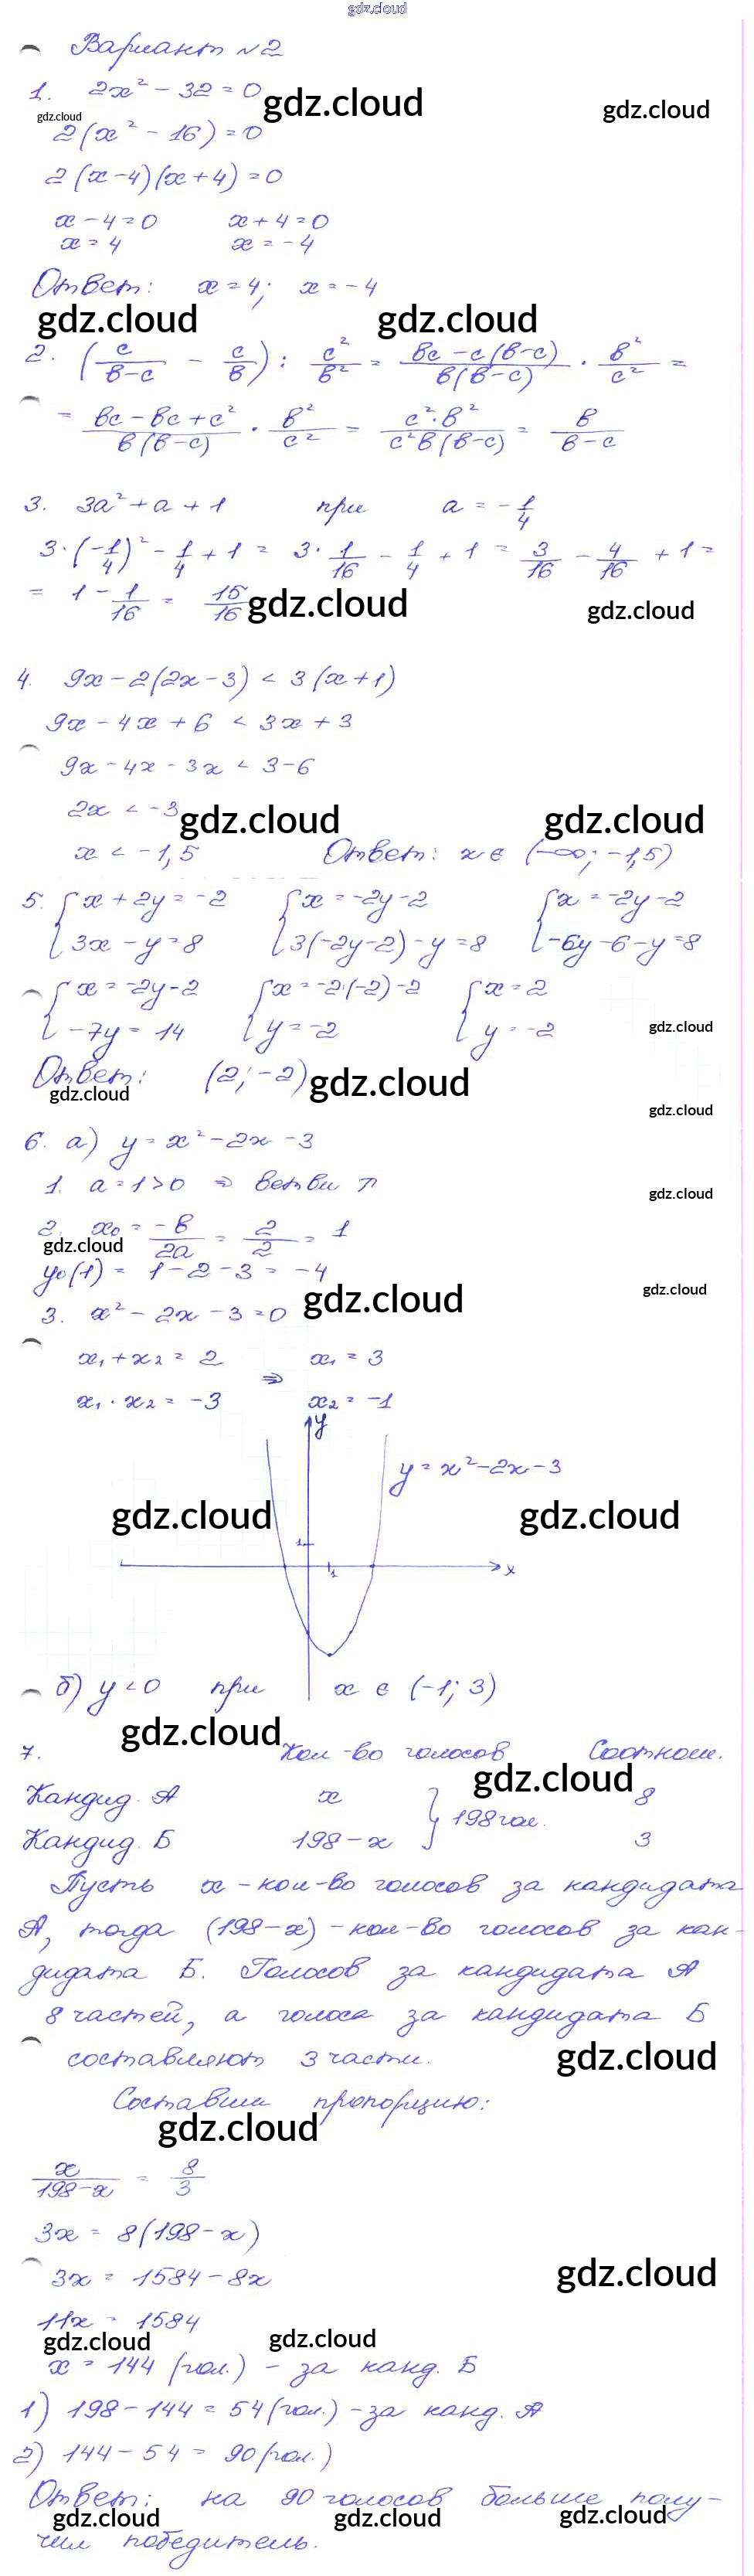 gdz.cloud
Вариант №2
1. 2x² - 32 = 0
gdz.cloud gdz.cloud
gdz.cloud
2(x² - 16) = 0
2(x-4)(x+4) = 0
x - 4 = 0 x + 4 = 0
x = 4 x = -4
Ответ: x = 4; x = -4
gdz.cloud gdz.cloud
2. (c/(в-c) - c/в) : c²/в² = (вc - c(в-c))/(в(в-c)) · в²/c² =
= (вc - вc + c²)/(в(в-c)) · в²/c² = (c²·в²)/(c²в(в-c)) = в/(в-c)
3. 3a² + a + 1 при a = -1/4
3·(-1/4)² - 1/4 + 1 = 3·1/16 - 1/4 + 1 = 3/16 - 4/16 + 1 =
= 1 - 1/16 = 15/16
gdz.cloud gdz.cloud
4. 9x - 2(2x-3) < 3(x+1)
9x - 4x + 6 < 3x + 3
9x - 4x - 3x < 3 - 6
2x < -3
gdz.cloud gdz.cloud
x < -1,5 Ответ: x ∈ (-∞; -1,5)
5. {x + 2y = -2 {x = -2y-2 {x = -2y-2
{3x - y = 8 {3(-2y-2) - y = 8 {-6y-6-y = 8
{x = -2y-2 {x = -2·(-2)-2 {x = 2
{-7y = 14 {y = -2 {y = -2
gdz.cloud
Ответ: (2; -2)
gdz.cloud gdz.cloud
gdz.cloud
6. а) y = x² - 2x - 3
1. a = 1 > 0 ⇒ ветви ↑
gdz.cloud
2. x₀ = -в/2a = 2/2 = 1
gdz.cloud
y₀(1) = 1 - 2 - 3 = -4
gdz.cloud gdz.cloud
3. x² - 2x - 3 = 0
x₁ + x₂ = 2 ⇒ x₁ = 3
x₁ · x₂ = -3 x₂ = -1
y
y = x² - 2x - 3
gdz.cloud gdz.cloud
1
1 x
б) y < 0 при x ∈ (-1; 3)
gdz.cloud
7. Кол-во голосов Соотнош.
gdz.cloud
Кандид. А x } 198 гол. 8
Кандид. Б 198 - x 3
Пусть x - кол-во голосов за кандидата
А, тогда (198-x) - кол-во голосов за кан-
дидата Б. Голосов за кандидата А
8 частей, а голоса за кандидата Б
составляют 3 части.
gdz.cloud
Составим пропорцию:
gdz.cloud
x/(198-x) = 8/3
3x = 8(198-x)
gdz.cloud
3x = 1584 - 8x
11x = 1584
gdz.cloud gdz.cloud
x = 144 (гол.) - за канд. Б
1) 198 - 144 = 54 (гол.) - за канд. А
2) 144 - 54 = 90 (гол.)
Ответ: на 90 голосов больше полу-
gdz.cloud gdz.cloud gdz.cloud
чил победитель.